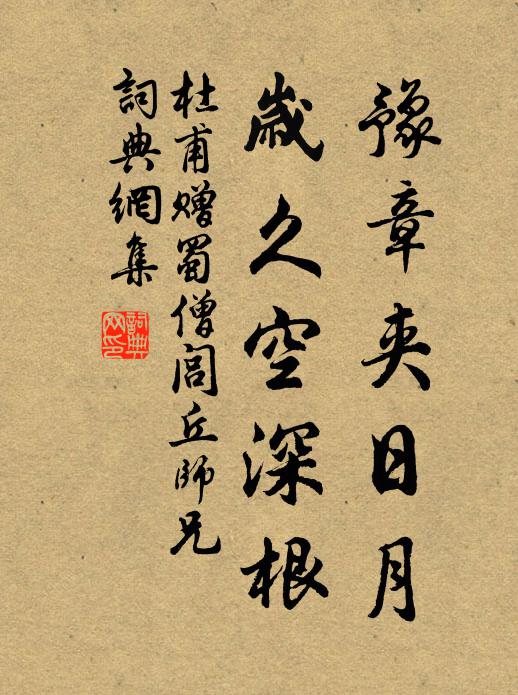 豫章夹日月
歲久空深根
杜甫贈蜀僧閭丘師兄
詞典網集
詞典
网印